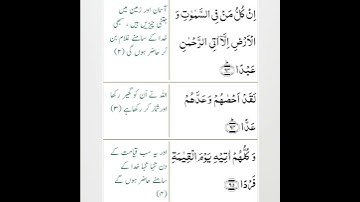 اِنْ كُلُّ مَنْ فِي السَّمٰوٰتِ وَ
الْاَرْضِ اِلَّاۤ اٰتِي الرَّحْمٰنِ
عَبْدًا ﴿۹۳﴾
آسمان اور زمین میں
جتنی چیزیں ہیں، سبھی
خدا کے سامنے غلام بن
کر حاضر ہوں گی (۲)
لَقَدْ اَحْصٰىهُمْ وَعَدَّهُمْ
عَدًّا ﴿۹۴﴾
اللہ نے اُن کو گھیر رکھا
اور شمار کر رکھا ہے (۳)
وَ كُلُّهُمْ اٰتِيْهِ يَوْمَ الْقِيٰمَةِ
فَرْدًا ﴿۹۵﴾
اور یہ سب قیامت کے
دن تنہا تنہا خدا کے
سامنے حاضر ہوں گے
(۴)